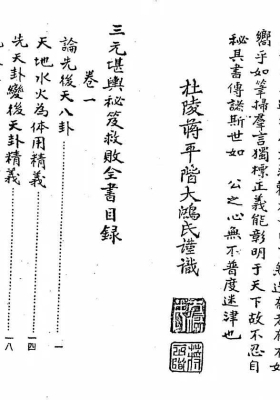 嚮乎如筆掃羣言獨標正義能彰明于天下故不忍自
秘其書傳諸斯世如 公之心無不普度迷津也
杜陵蔣平階大鴻氏謹識
三元堪輿秘笈救敗全書目錄
卷一
論先後天八卦………一
天地水火為体用精義………一四
先天卦變後天卦精義………一八